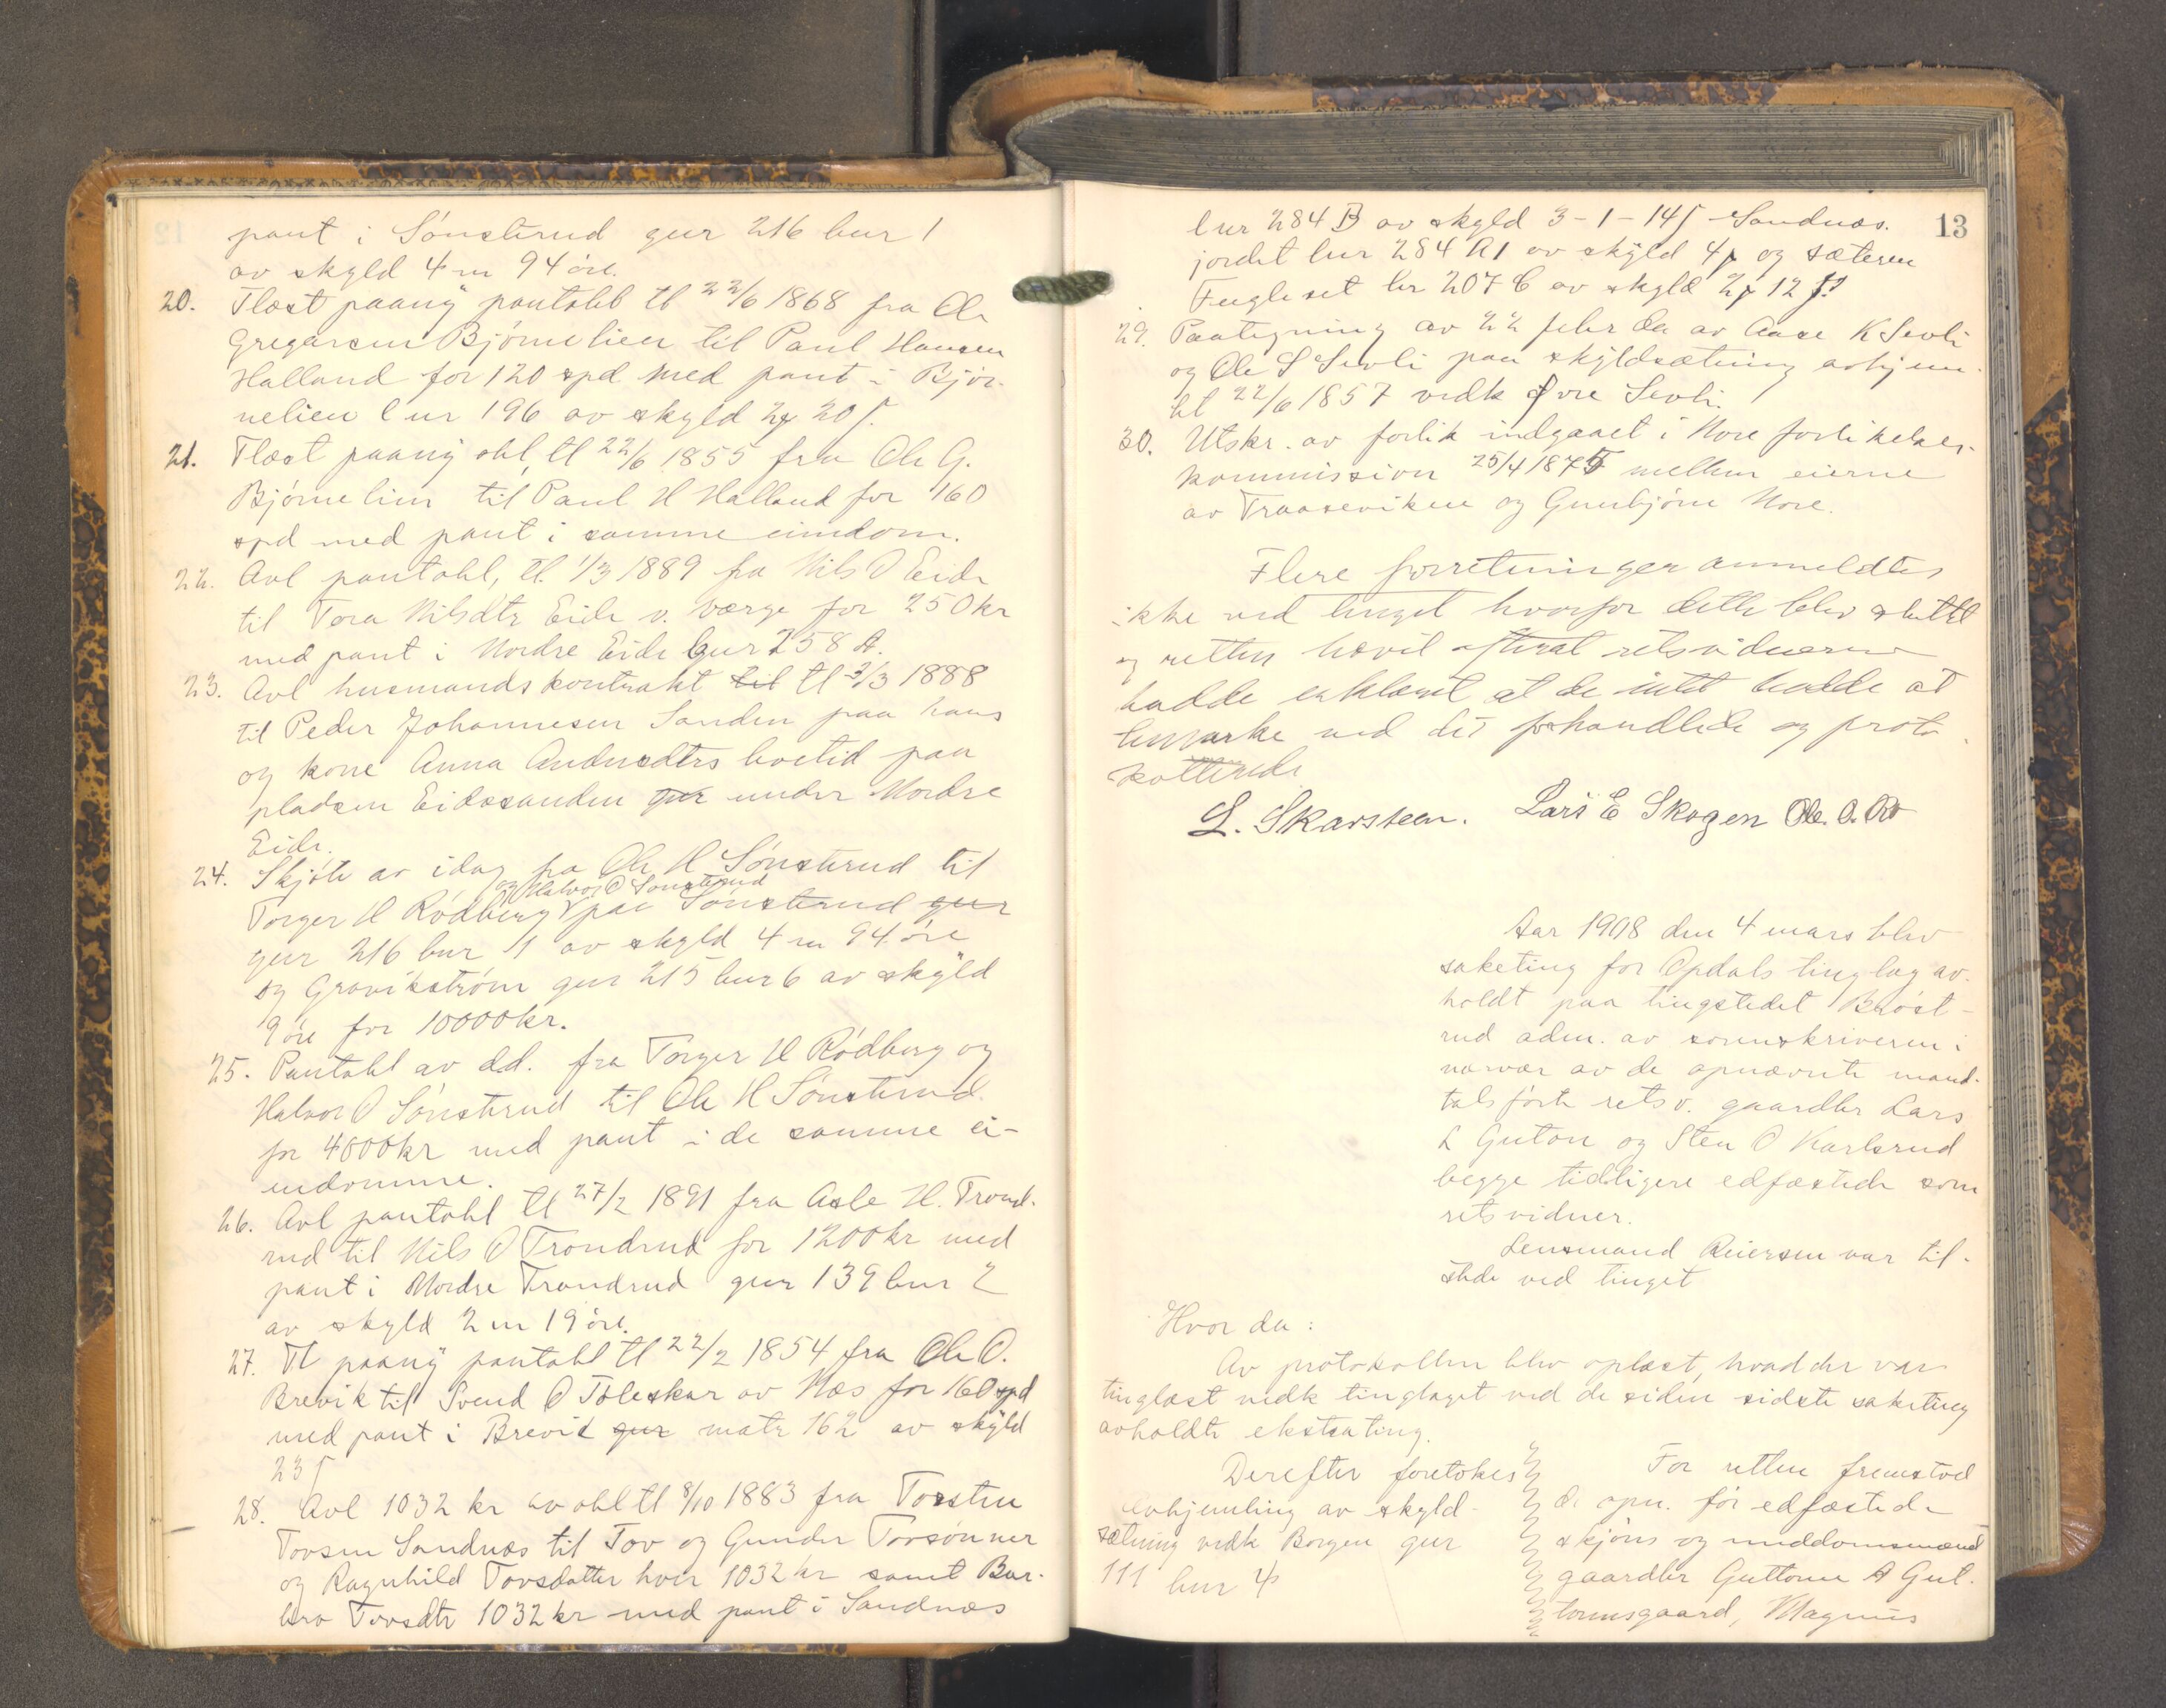 pant i Sønsterud gnr 216 bnr 1
av skyld 4 m 94 øre.
20. Tlæst paany pantobl tl 22/6 1868 fra Ole
Gregarsen Bjørnelien til Paul Hansen
Halland for 120 spd med pant i Bjør-
nelien lnr 196 av skyld 2 20
21. Tlæst paany obl, tl 22/6 1855 fra Ole G.
Bjørnelien til Paul H Halland for 160
spd med pant i samme eiendom.
22. Avl pantobl, tl. 1/3 1889 fra Nils O Eide
til Tora Nilsdtr Eide v. værge for 250 kr
med pant i Nordre Eide lnr 258 A.
23. Avl husmandskontrakt til tl 2/3 1888
til Peder Johannesen Sanden paa hans
og kone Anna Andersdtrs boetid paa
pladsen Eidssanden gnr under Nordre
Eide.
24. Skjøte av idag fra Ole H Sønsterud til
og Halvor O Sønsterud
Torger H Rødberg paa Sønsterud gnr
gnr 216 bnr 1 av skyld 4 m 94 øre
og Gravikstrøm gnr 215 bnr 6 av skyld
9 øre for 10000 kr.
25. Pantobl av d.d. fra Torger H Rødberg og
Halvor O Sønsterud til Ole H Sønsterud
for 4000 kr med pant i de samme ei-
endomme.
26. Avl pantobl tl 27/2 1891 fra Asle H. Trond-
rud til Nils O Trondrud for 1200 kr med
pant i Nordre Trondrud gnr 139 bnr 2
av skyld 2 m 19 øre.
27. Tl paany pantobl tl 22/2 1854 fra Ole O.
Brevik til Svend O Toleskar av Næs for 160 spd
med pant i Brevik gnr matr 162 av skyld
23
28. Avl 1032 kr av obl tl 8/10 1883 fra Torsten
Tovsen Sandnæs til Tov og Gunder Tovsønner
og Ragnhild Tovsdatter hver 1032 kr samt Bar-
bro Tovsdtr 1032 kr med pant i Sandnæs
13
lnr 284 B av skyld 3-1-14 Sandnæs.
jordet lnr 284 A1 av skyld 4 og sæteren
Fugleset lnr 207 C av skyld 2 12
29. Paategning av 22 febr da av Aase K Sevli
og Ole S Sevli paa skyldsætning avhjem.
tl 22/6 1857 vedk Øvre Sevli.
30. Utskr. av forlik indgaaet i Nore forlikelses-
kommission 25/4 1875 mellem eierne
av Traaseviken og Gunbjørn Nore.
Flere forretninger anmeldtes
ikke ved tinget hvorfor dette blev sluttet
og retten hævet efterat retsvidnerne
hadde erklæret at de intet hadde at
bemerke ved det forhandlede og proto-
kollerede
L. Skarsteen. Lars E Skogen Ole. O.
Aar 1908 den 4 mars blev
saketing for Opdals tinglag av-
holdt paa tingstedet Brøst-
rud adm. av sorenskriveren i
nærvær av de opnævnte mand-
talsførte retsv. gaardbr Lars
L Guton og Sten O Karlsrud
begge tidligere edfæstede som
retsvidner.
Lensmand Reiersen var til-
stede ved tinget
Hvor da:
Av protokollen blev oplæst, hvad der var
tinglæst vedk tinglaget ved de siden sidste saketing
avholdte ekstrating.
Derefter foretokes
avhjemling av skyld-
sætning vedk Borgen gnr
111 bnr 4
For retten fremstod
de opn. før edfæstede
skjøns og meddomsmænd
gaardbr Guttorm A Gut-
tormsgaard, Magnus